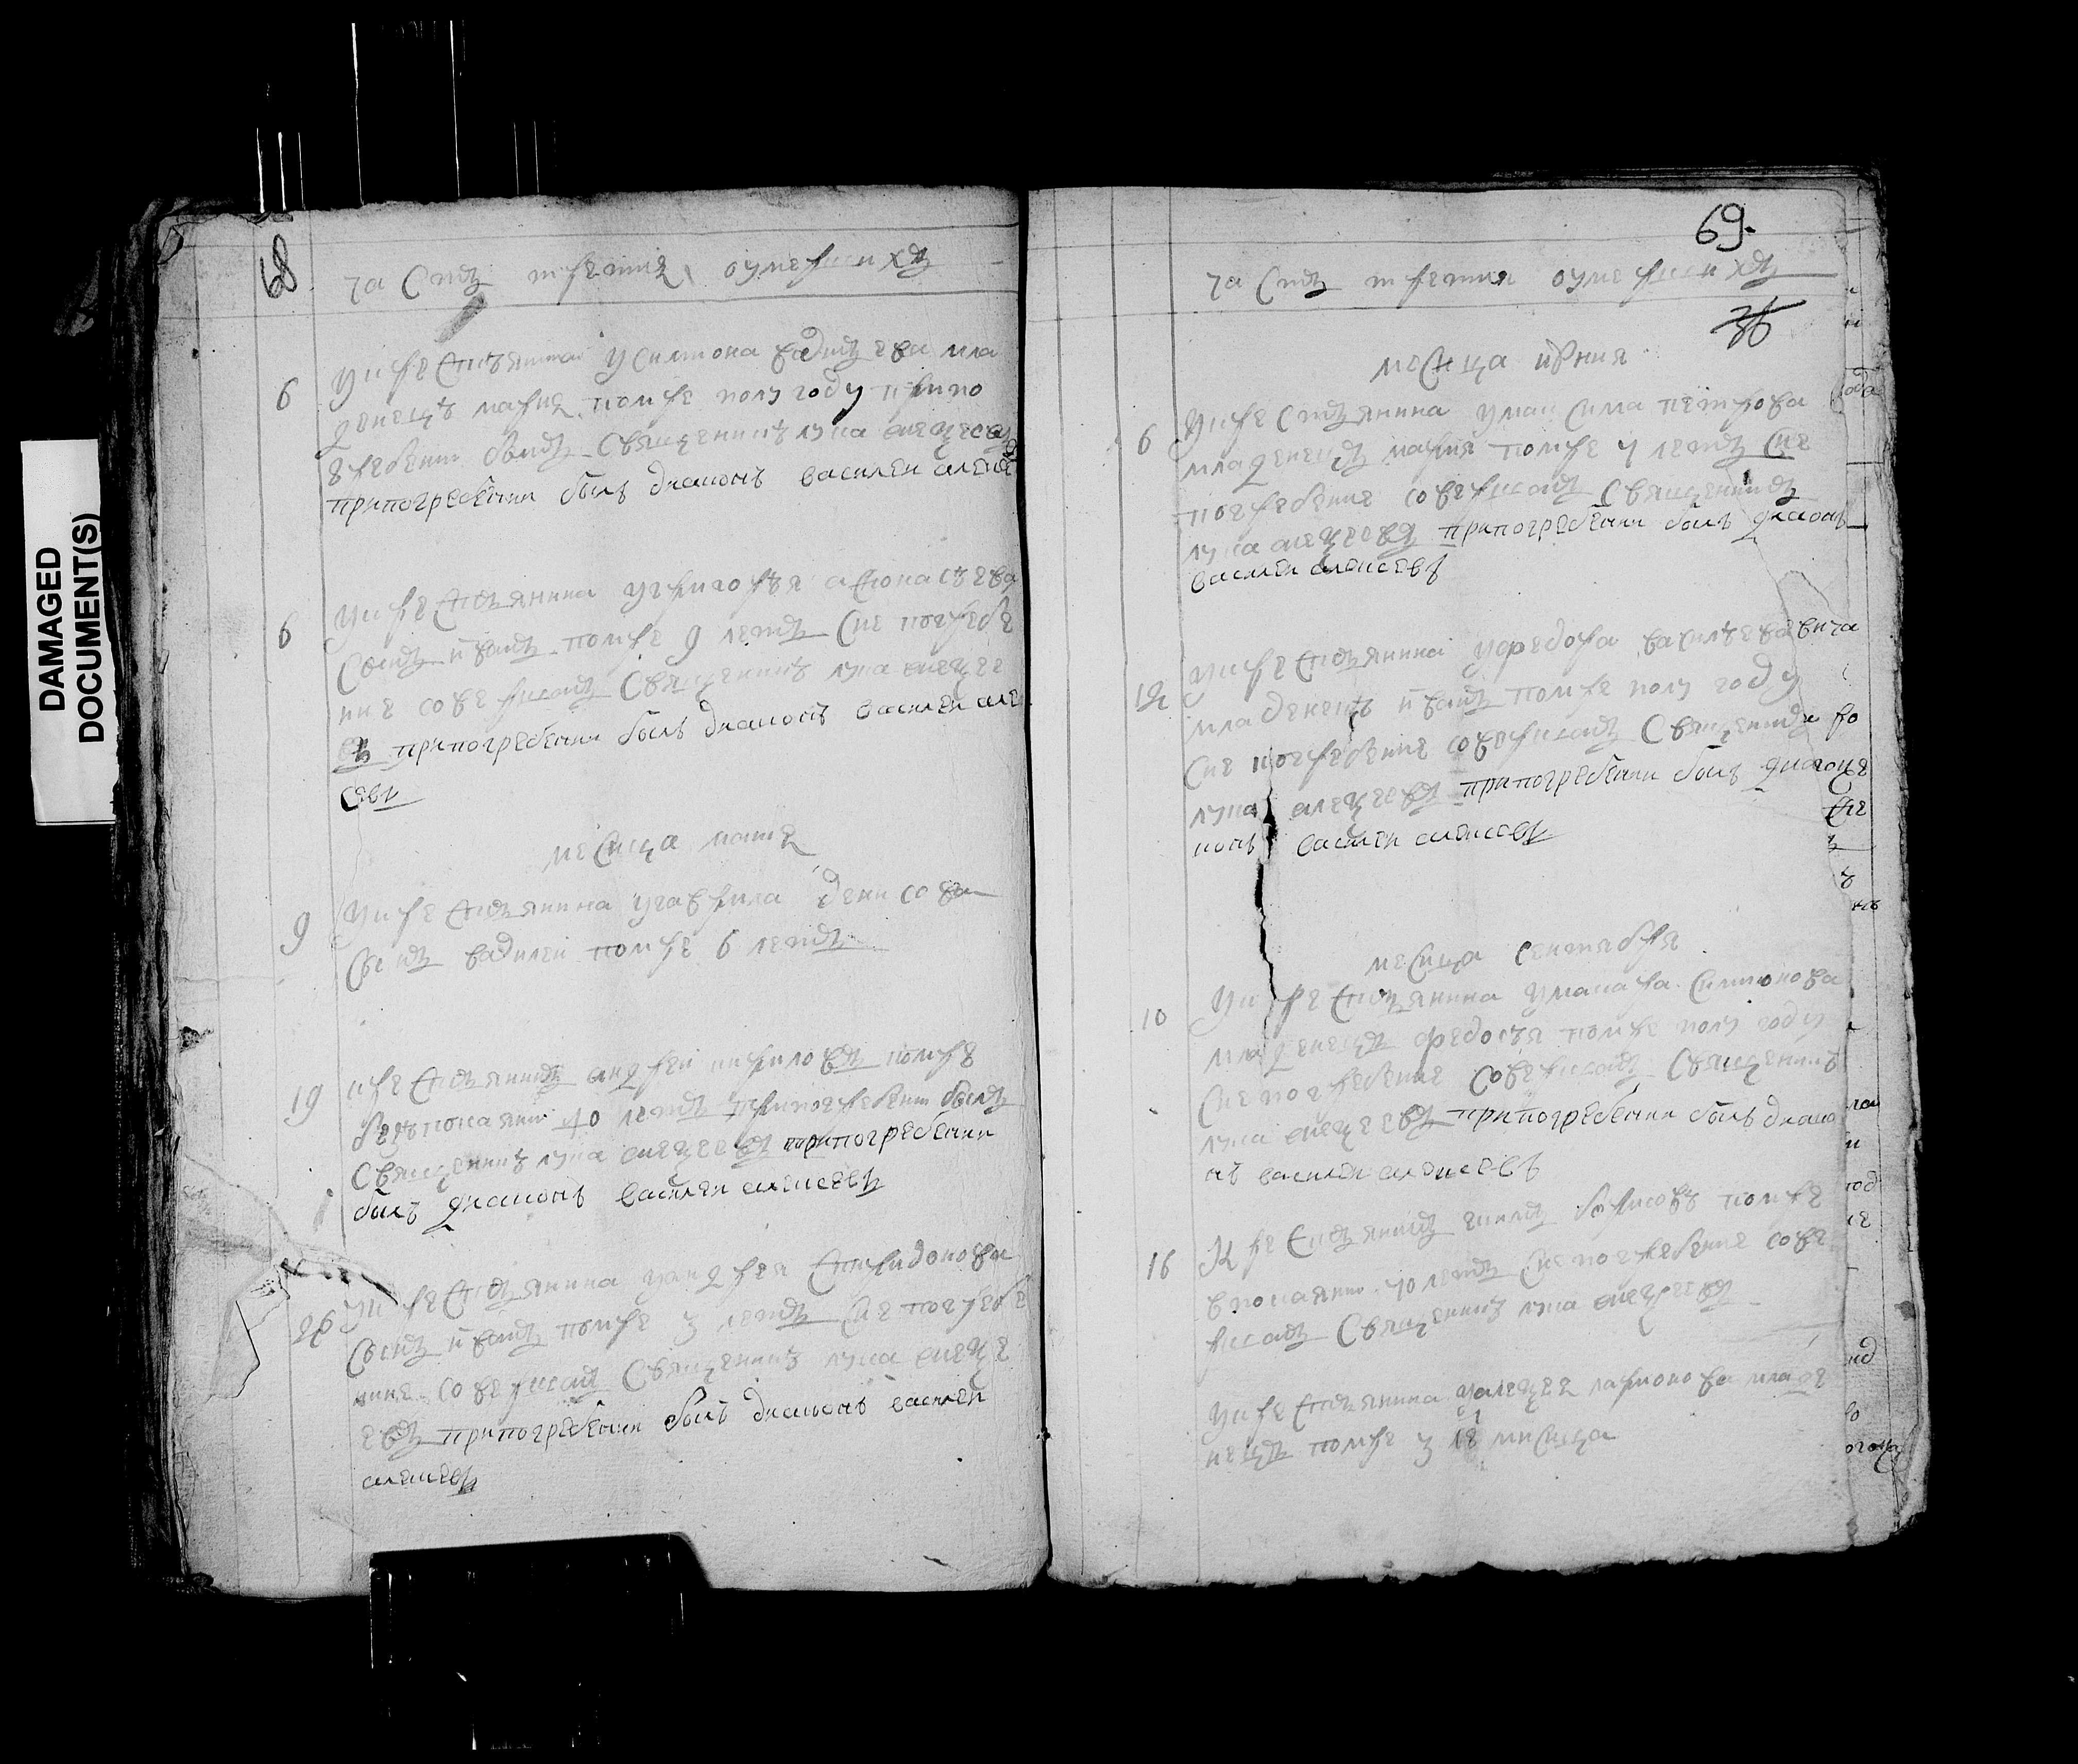 DAMAGED
DOCUMENT(S)
68
часть третия оумерших
6
у крестьянина у симиона
денецъ мария помре полу году при по
гребении былъ священникъ лука алеѯеев
припогребенни былъ диаконъ василеи алексе
6
у крестьянина у григорья афонасьева
сынъ иванъ помре 9 летъ сие погребе
ние совершалъ священникъ лука алеѯее
въ припогребенни былъ диаконъ василеи але
сѣевъ
месица маия
9
у крестьянина у гаврила денисова
сынъ василеи помре 6 летъ
19
крестьянинъ андреи кириловъ помре
покаянии 40 летъ припогребении былъ
священникъ лука алеѯеевъ припогребенни
былъ диаконъ василеи алексеевъ
26
у крестьянина у андрея спиридонова
сынъ иванъ помре 3 летъ сие погребе
ние совершалъ священникъ лука алеѯе
евъ припогребенни былъ диаконъ василеи
алексеевъ
69.
часть третия оумерших
36
месица июния
6
у крестьянина у максима петрова
младенецъ мария помре 4 летъ сие
погребение совершалъ священникъ
лука алеѯеевъ припогребенни былъ диаконъ
василеи алексеевъ
12
у крестьянина у федора васильевича
младенецъ иванъ помре полу году
сие погребение совершалъ священникъ
лука алеѯеевъ припогребенни былъ диа
конъ василеи алексеевъ
месица сентября
10
у крестьянина у макара симионова
младенецъ федосья помре полу году
сие погребение совершалъ священникъ
лука алеѯеевъ припогребенни былъ диако
нъ василеи алексеевъ
16
крестьянинъ борисовъ помре
в покаянии 70 летъ сие погребение сове
ршалъ священникъ лука алеѯеевъ
у крестьянина у алеѯея ларионова младе
нецъ помре 3 месица